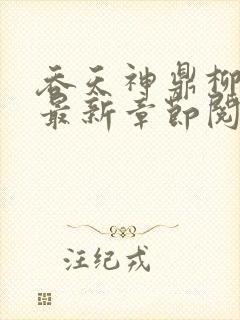 吞天神鼎柳
最新章节阅
汪纪戎